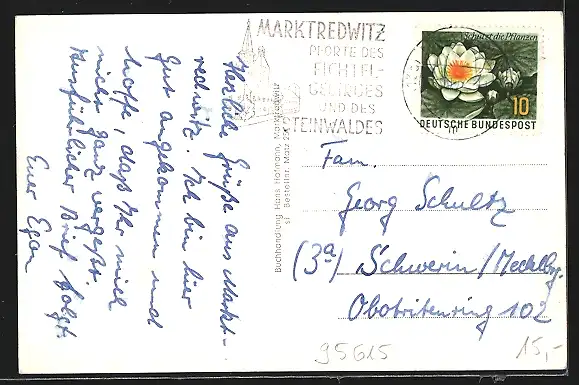 MARKTREDWITZ
PFORTE DES
FICHTEL-
GEBIRGES
UND DES
STEINWALDES
Schützt die Pflanzen
10
DEUTSCHE BUNDESPOST
Herzliche Grüße aus Markt-
redwitz. Ich bin hier
gut angekommen und
hoffe, daß Ihr mich
nicht ganz vergeßt.
Ausführlicher Brief folgt.
Euer Egon
Buchhandlung Hans Hofmann, Marktredwitz
Bestellnr. Matz
Fam.
Georg Schultz
(3a) Schwerin/Mecklbg.
Obotritenring 102
95615
15,-